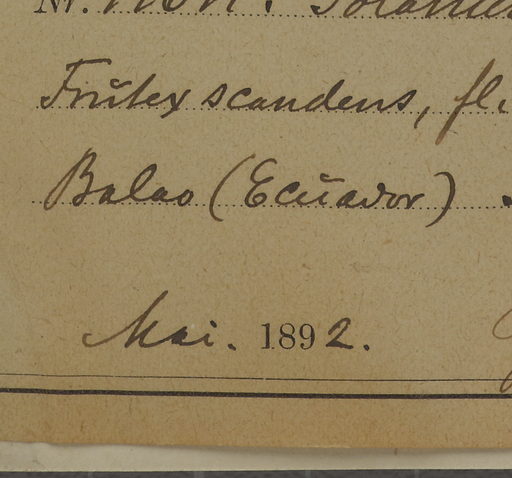 Nr.
Frŭtex scandens, fl.
Balao (Ecŭador).
Mai. 1892.